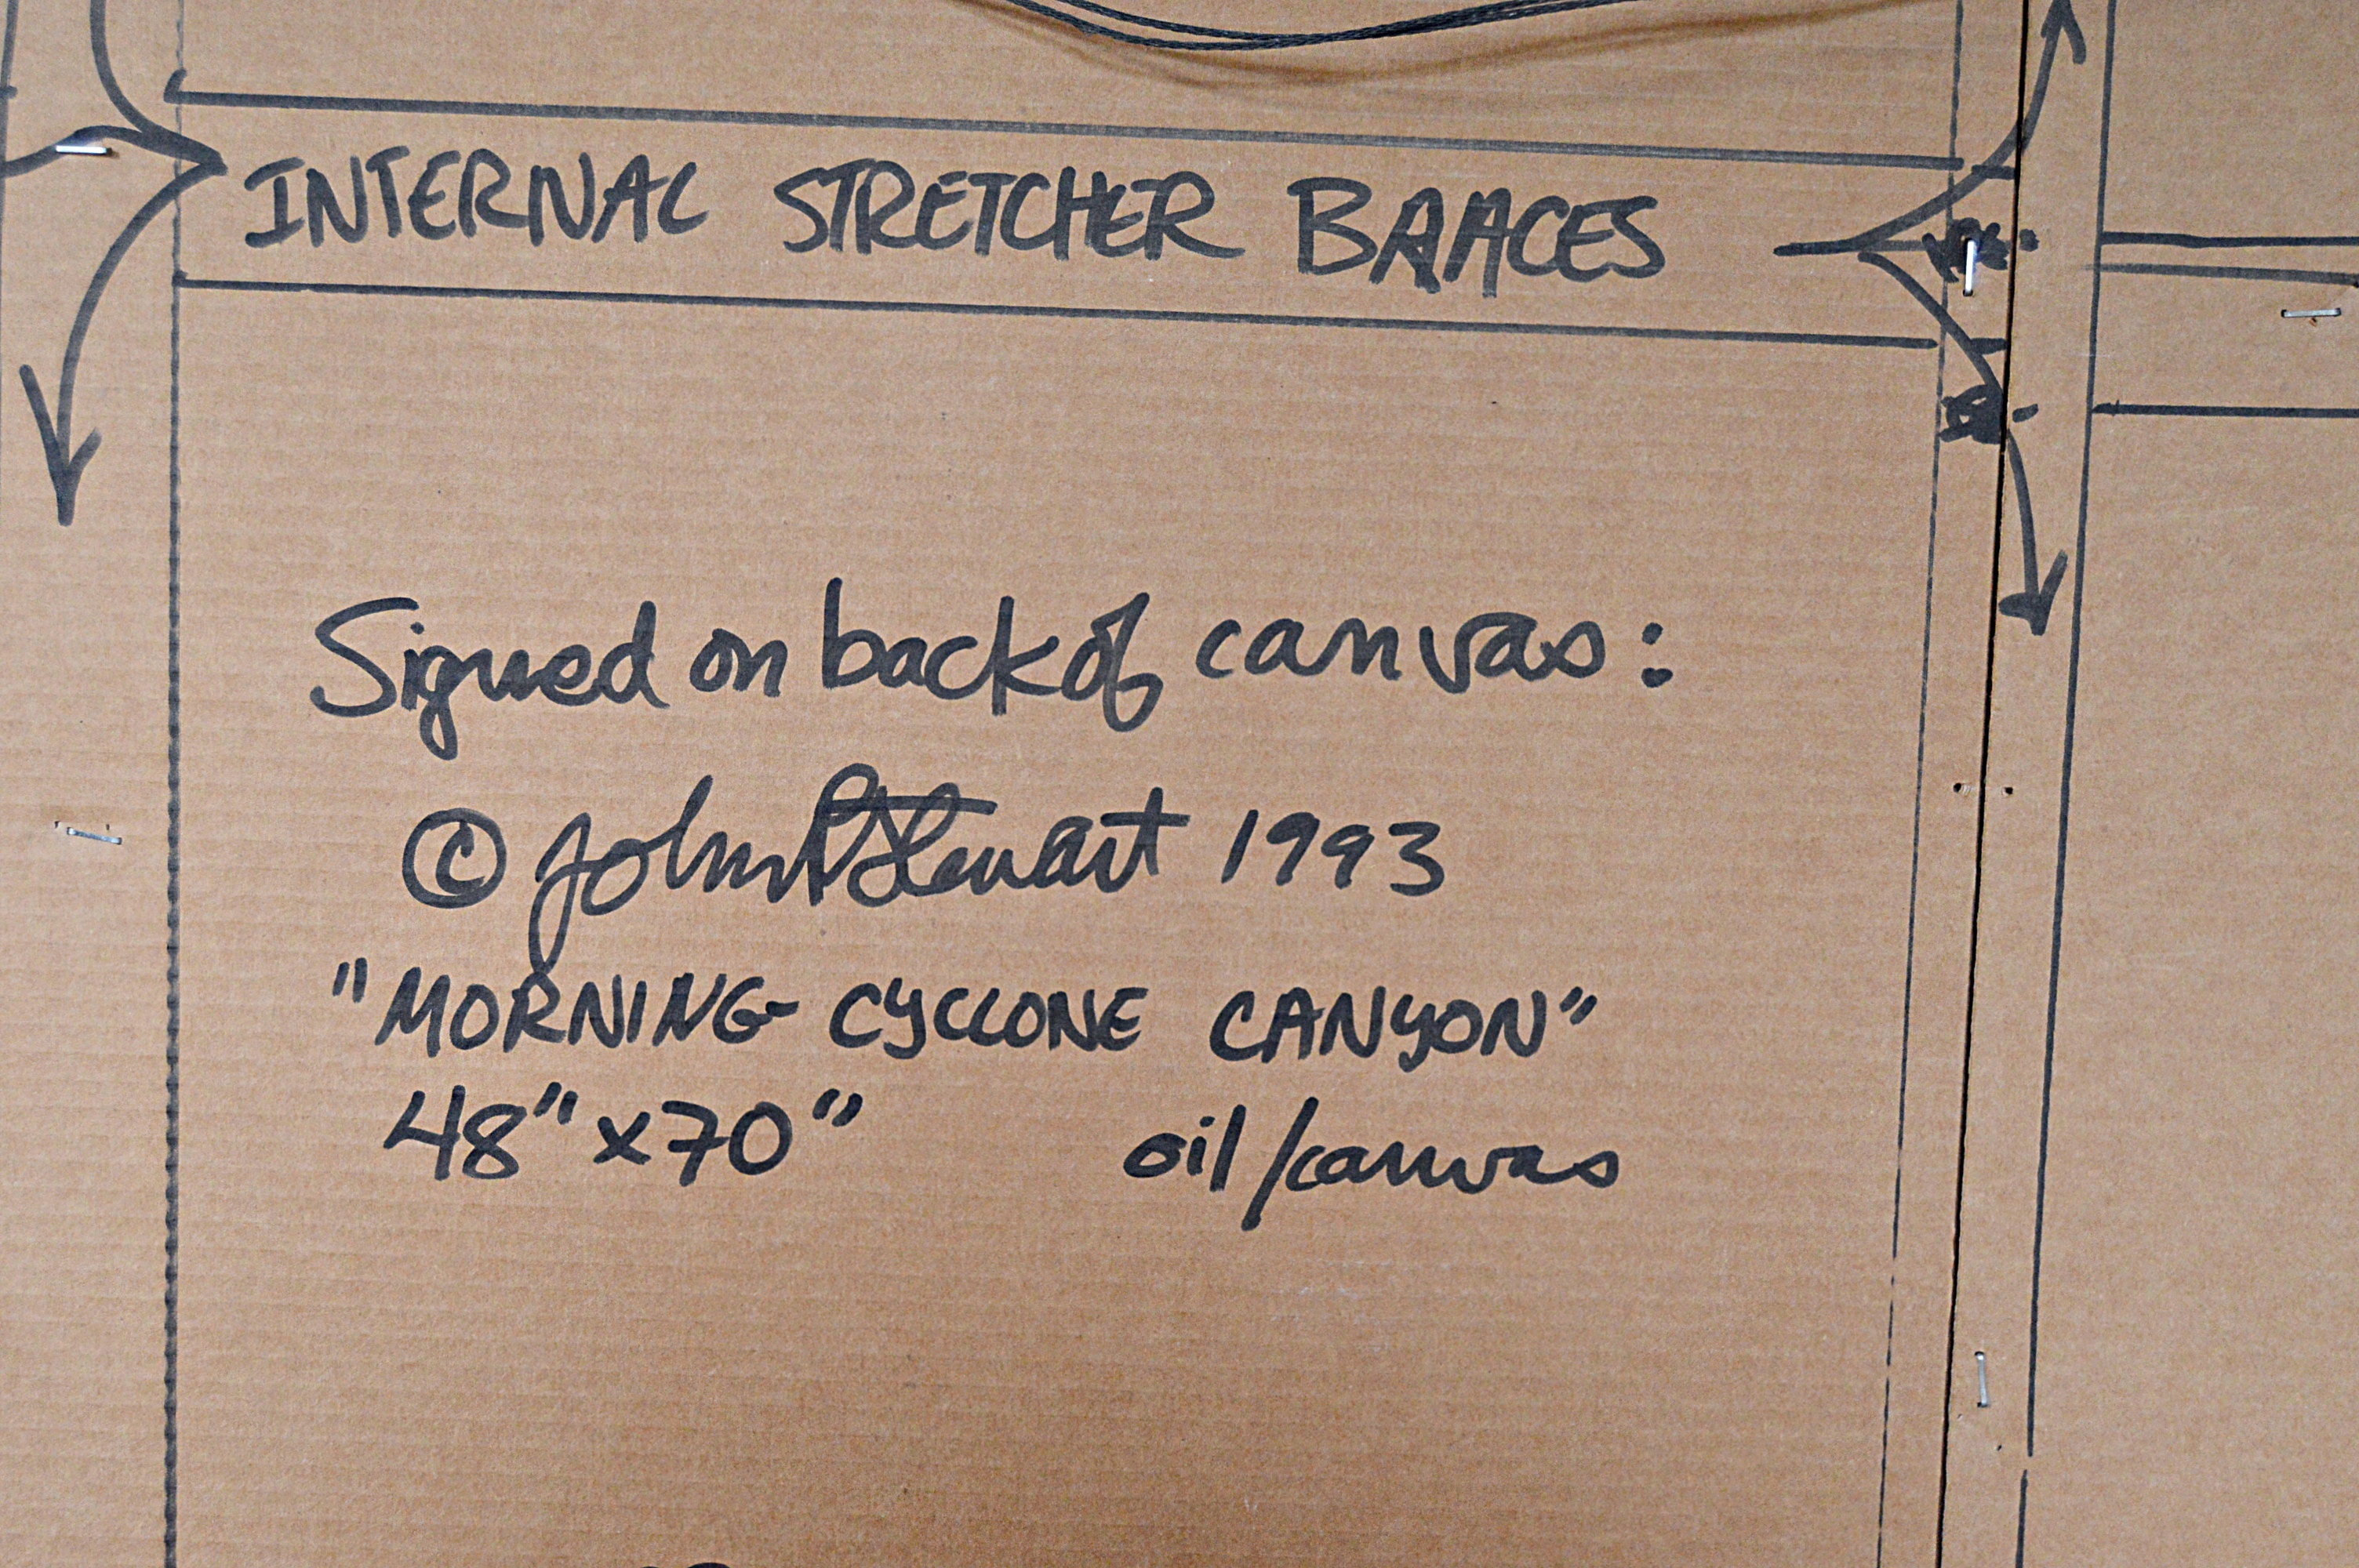 INTERNAL STRETCHER BRACES
Signed on back of canvas:
© John P Stewart 1993
"MORNING- CYCLONE CANYON"
48" x 70" oil/canvas